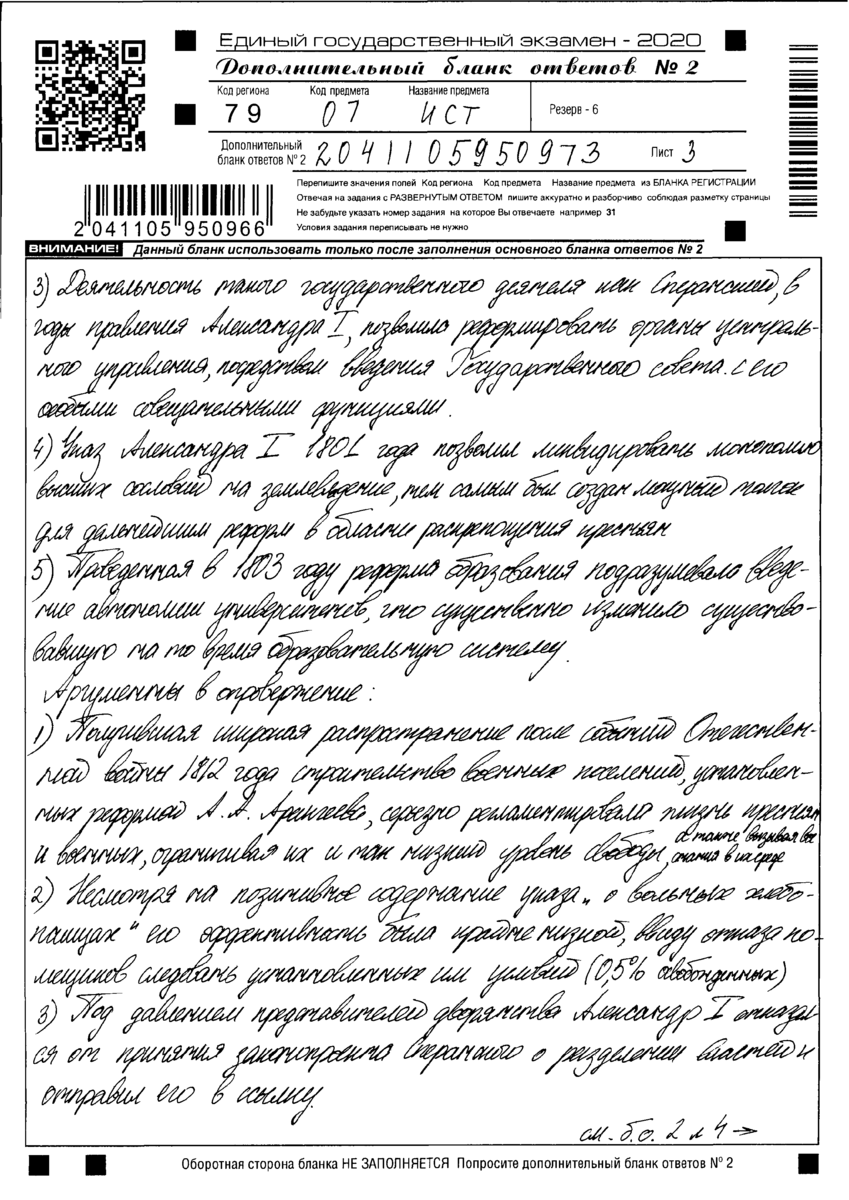 Единый государственный экзамен - 2020
Дополнительный бланк ответов № 2
Код региона Код предмета Название предмета
79 07 ИСТ Резерв - 6
Дополнительный бланк ответов № 2 2041105950973 Лист 3
Перепишите значения полей Код региона Код предмета Название предмета из БЛАНКА РЕГИСТРАЦИИ
Отвечая на задания с РАЗВЕРНУТЫМ ОТВЕТОМ пишите аккуратно и разборчиво соблюдая разметку страницы
Не забудьте указать номер задания на которое Вы отвечаете например 31
Условия задания переписывать не нужно
2 041105 950966
ВНИМАНИЕ! Данный бланк использовать только после заполнения основного бланка ответов № 2
3) Деятельность такого государственного деятеля как Сперанский, в
годы правления Александра I, позволила реформировать органы централь-
ного управления, посредствам введения Государственного совета с его
особыми совещательными функциями.
4) Указ Александра I 1801 года позволил ликвидировать монополию
высших сословий на землевладение, тем самым был создан мощный толчок
для дальнейшим реформ в области раскрепощения крестьян
5) Проведенная в 1803 году реформа образования подразумевала введе-
ние автономии университетов, что существенно изменило существо-
вавшую на то время образовательную систему.
Аргументы в опровержение:
1) Получившая широкая распространение после событий Отечествен-
ной войны 1812 года строительство военных поселений, установлен-
ных реформой А. А. Аракчеева, серьезно регламентировала жизнь крестьян
и военных, ограничивая их и так низкий уровень свободы, а также вызывая вос-
стания в их среде
2) Несмотря на позитивное содержание указа „о вольных хлебо-
пашцах" его эффективность была крайне низкой, ввиду отказа по-
мещиков следовать установленных им условий (0,5% освобожденных)
3) Под давлением представителей дворянства Александр I отказал-
ся от принятия законопроекта Сперанского о разделении властей и
отправил его в ссылку.
см. б.о. 2 л 4 →
Оборотная сторона бланка НЕ ЗАПОЛНЯЕТСЯ Попросите дополнительный бланк ответов № 2